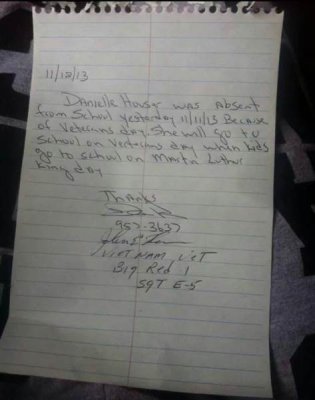 11/12/13
Danielle Houser was absent
from School yesterday 11/11/13 Because
of Veterans day. She will go to
School on Veterans day when kids
go to school on Martin Luther
King day
Thanks
957-3637
VIETNAM, VET
Big Red 1
SGT E-5